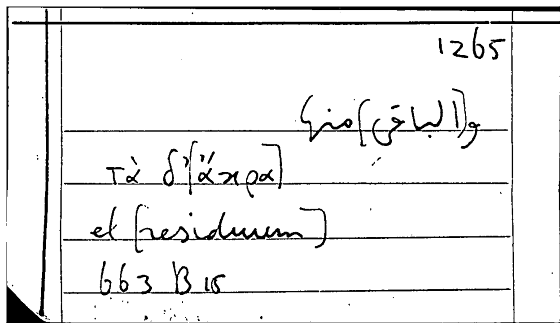 1265
و[الباقى] منها
τὰ δ’[ἄκρα]
et [residuum]
663 B 15